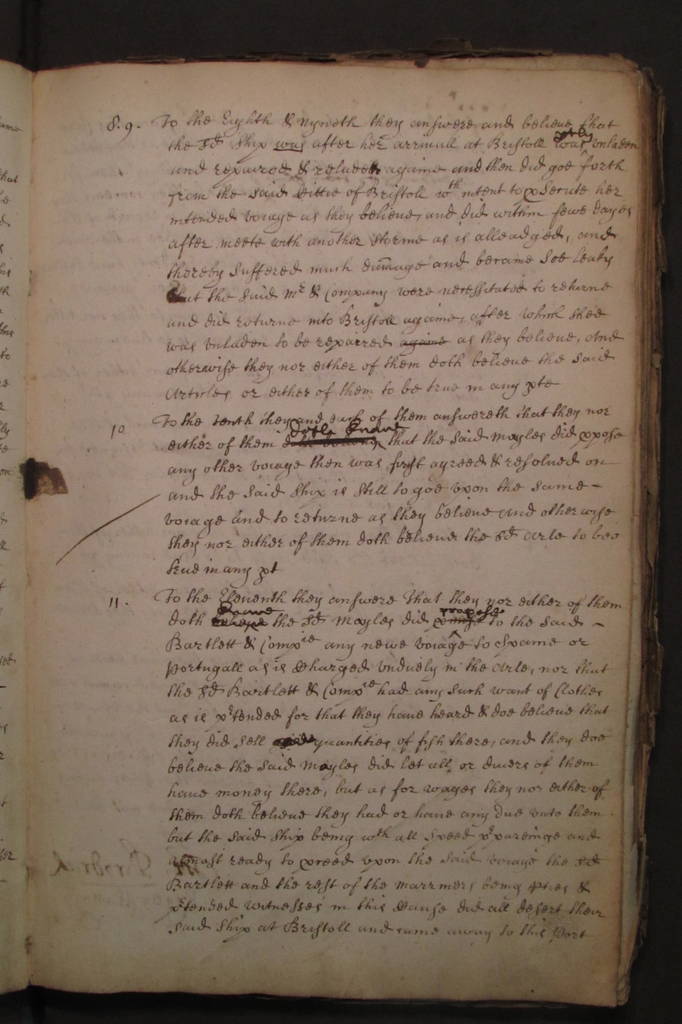 8.9. To the Eighth & Nyneth they answere and believe that
the sd ship was after her arrivall at Bristoll was ptly unladen
and repaired & reladed againe and then did goe forth
from the said Cittie of Bristoll wth intent to psecute her
intended voiage as they believe, and did within fewe dayes
after meete with another storme as is alleadged, and
thereby suffered much damage and became soe leaky
that the said Mr & Company were necessitated to returne
and did returne into Bristoll againe, after which shee
was unladen to be repaired againe as they believe, And
otherwise they nor either of them doth believe the said
Articles or either of them to be true in any pte
10 To the tenth they and each of them answereth that they nor
either of them doth knowe that the said Moyles did ppose
any other voiage then was first agreed & resolved on
and the said ship is still to goe upon the same
voiage and to returne as they believe And otherwise
they nor either of them doth believe the sd Arle to bee
true in any pt
11. To the Eleventh they answere That they nor either of them
doth knowe the sd Moyles did propose to the said
Bartlett & Compie any newe voiage to Spaine or
Portugall as is Charged unduely in the Arle, nor that
the sd Bartlett & Compie had any such want of Clothes
as is ptended for that they have heard & doe believe that
they did sell quantities of fish there, and they doe
believe the said Moyles did let all or divers of them
have money there, but as for wages they nor either of
them doth believe they had or have any due unto them
but the said ship being wth all speed ppareinge and
almost ready to pceed upon the said voiage the sd
Bartlett and the rest of the marriners being pties &
ptended witnesses in this Cause did all desert their
said ship at Bristoll and came away to this Port